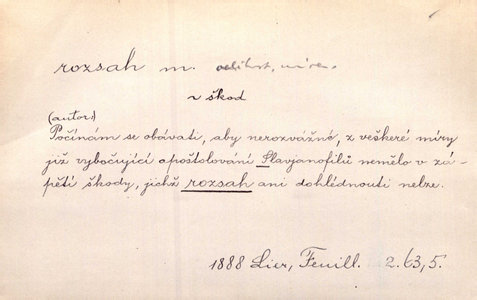 rozsah m. velikost, míra.
~ škod
(autor:)
Počínám se obávati, aby nerozvážné, z veškeré míry
již vybočující apoštolování Slavjanofilů nemělo v zá-
pětí škody, jichž rozsah ani dohlédnouti nelze.
1888 Lier, Feuill. 2. 63, 5.